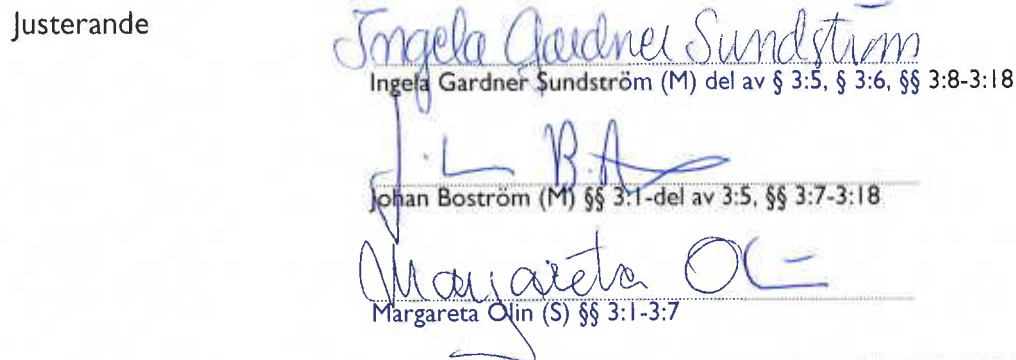 Justerande
Ingela Gardner Sundström
Ingela Gardner Sundström (M) del av § 3:5, § 3:6, §§ 3:8-3:18
Johan Boström (M) §§ 3:1-del av 3:5, §§ 3:7-3:18
Margareta
Margareta Olin (S) §§ 3:1-3:7